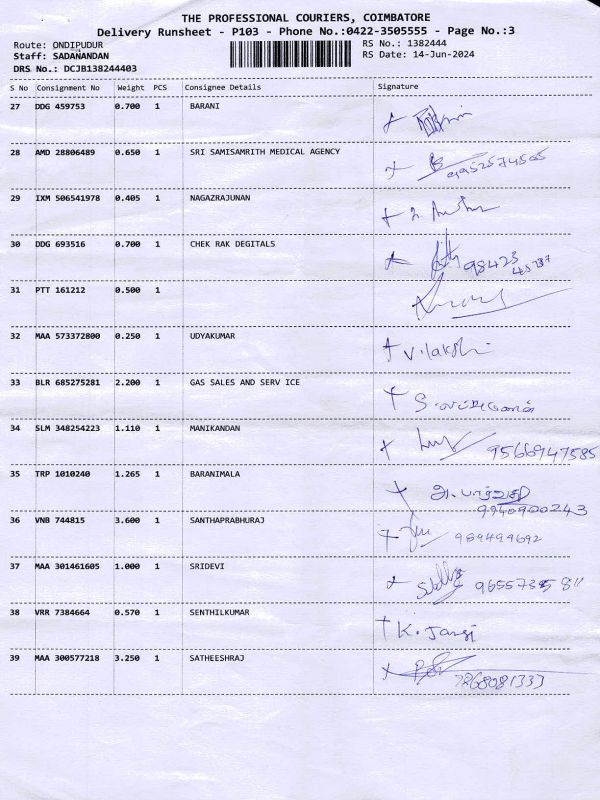 THE PROFESSIONAL COURIERS, COIMBATORE
Delivery Runsheet - P103 - Phone No.:0422-3505555 - Page No.:3
Route: ONDIPUDUR RS No.: 1382444
Staff: SADANANDAN RS Date: 14-Jun-2024
DRS No.: DCJB138244403
S No Consignment No Weight PCS Consignee Details Signature
27 DDG 459753 0.700 1 BARANI
28 AMD 28806489 0.650 1 SRI SAMISAMRITH MEDICAL AGENCY
9952574505
29 IXM 506541978 0.405 1 NAGAZRAJUNAN
30 DDG 693516 0.700 1 CHEK RAK DEGITALS
98423
31 PTT 161212 0.500 1
32 MAA 573372800 0.250 1 UDYAKUMAR V. lakshi
33 BLR 685275281 2.200 1 GAS SALES AND SERV ICE
34 SLM 348254223 1.110 1 MANIKANDAN
9566947585
35 TRP 1010240 1.265 1 BARANIMALA
9940900243
36 VNB 744815 3.600 1 SANTHAPRABHURAJ
989499692
37 MAA 301461605 1.000 1 SRIDEVI
38 VRR 7384664 0.570 1 SENTHILKUMAR K. Jansi
39 MAA 300577218 3.250 1 SATHEESHRAJ
7868081333